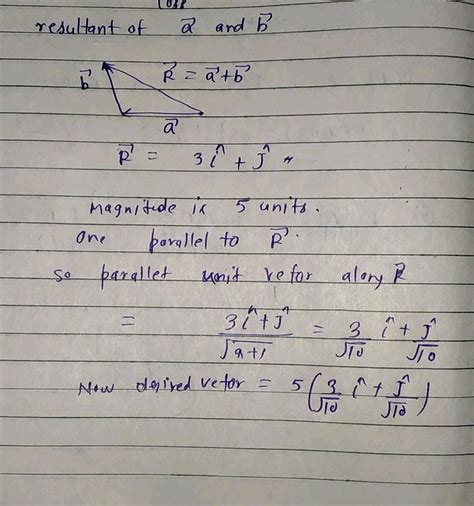 resultant of a⃗ and b⃗
b⃗ R⃗ = a⃗+b⃗
a⃗
R⃗ = 3î + ĵ
Magnitude is 5 units.
One parallel to R⃗.
So parallel unit vetor along R⃗
= 3î+ĵ/√9+1 = 3/√10 î + ĵ/√10
Now desired vetor = 5(3/√10 î + ĵ/√10)